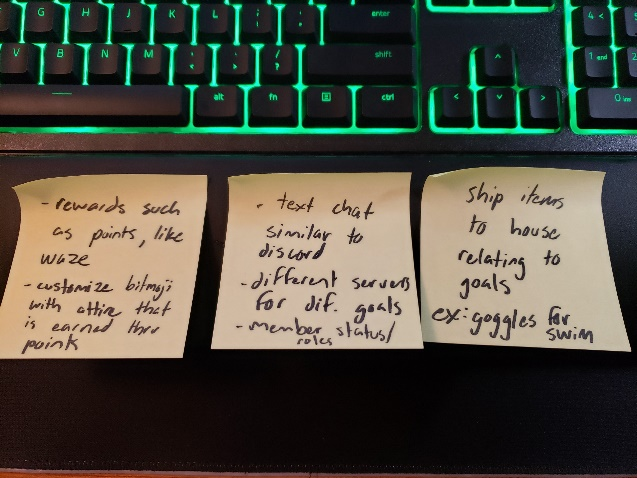 G H J K L : ; " ' enter
V B N M < , > . ? / shift
alt fn ctrl
4 <
1 end
0 ins
- rewards such
as points, like
waze
- customize bitmoji
with attire that
is earned thru
points
- text chat
similar to
discord
- different servers
for dif. goals
- member status/
roles
ship items
to house
relating to
goals
ex: goggles for
swim